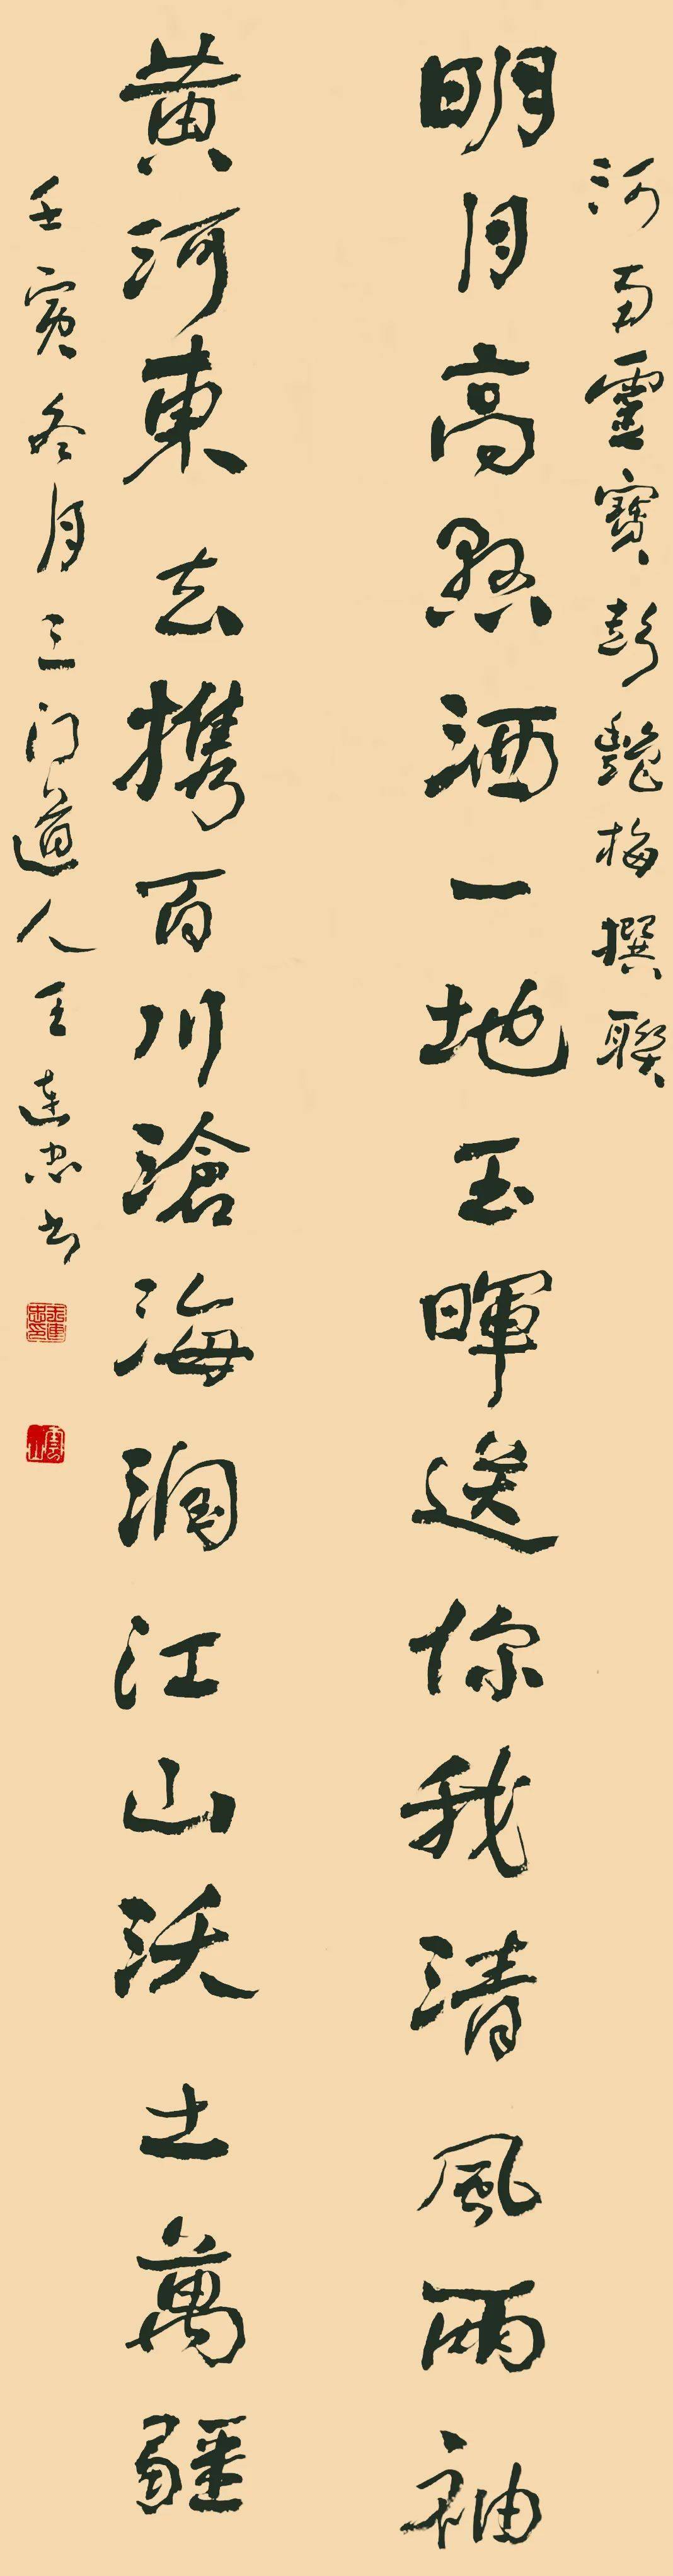 河南靈寶彭艷梅撰聯
明月高懸洒一地玉暉送你我清風兩袖
黄河東去携百川滄海潤江山沃土萬疆
壬寅冬月三门道人王連忠书